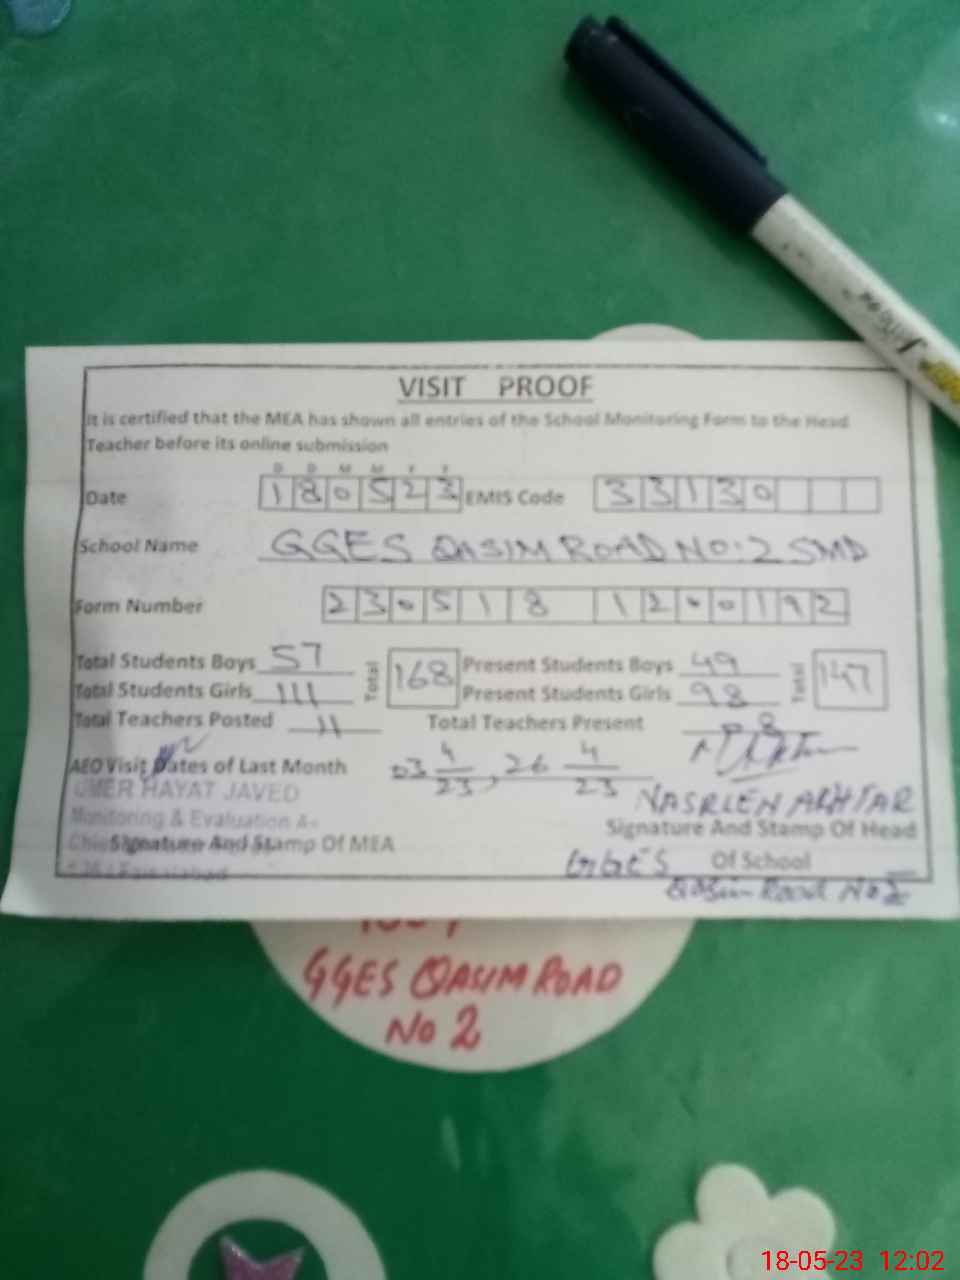 VISIT PROOF
It is certified that the MEA has shown all entries of the School Monitoring Form to the Head
Teacher before its online submission
D D M M Y Y
Date 180523 EMIS Code 33130
School Name GGES QASIM ROAD NO:2 SMD
Form Number 230518 1200192
Total Students Boys 57 Total 168 Present Students Boys 49 Total 147
Total Students Girls 111 Present Students Girls 98
Total Teachers Posted 11 Total Teachers Present 8
AEO Visit Dates of Last Month 03 4/23, 26 4/23
UMER HAYAT JAVED
NASREEN AKHTAR
Monitoring & Evaluation
Signature And Stamp Of Head
Signature And Stamp Of MEA
GGES Of School
Qasim Road No 2
GGES QASIM ROAD
No 2
18-05-23 12:02